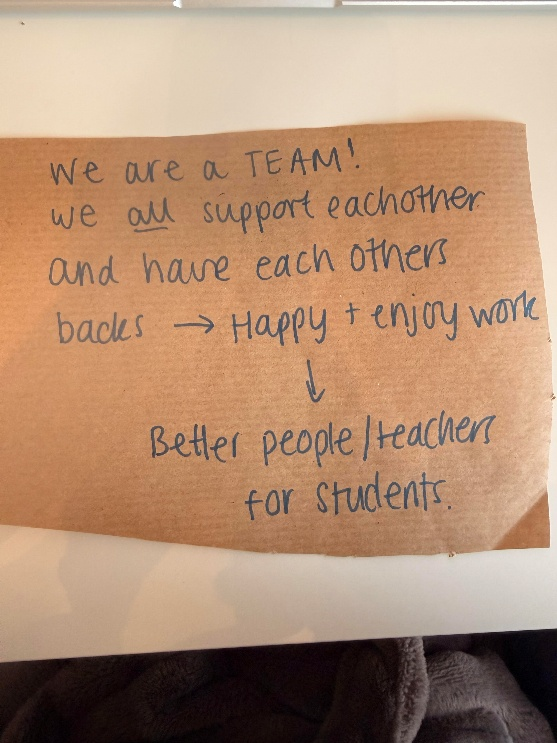 We are a TEAM!
we all support eachother
and have each others
backs → Happy + enjoy work
↓
Better people/teachers
for students.